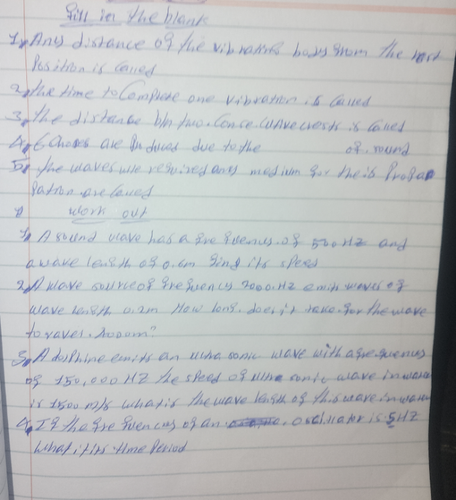 fill in the blank
1, Any distance of the vibrating body from the
Position is called
2, the time to Complete one vibration is called
3, the distance b/n two Conse. wave crests is called
4, echoes are Produced due to the of sound
5, the waves medium for their Propa
gation are called
work out
1, A sound wave has a frequency of 500 HZ and
a wave length of find its speed
2, A wave source of frequency HZ emit waves of
wave length 0.2m How long does it take for the wave
to travel
3, A dolphine emits an ultra sonic wave with a frequency
of 150,000 HZ the speed of ultra sonic wave in water
is 1500 m/s what is the wave length of this wave in water
4, If the frequency of an oscillator is 5HZ
what is its time Period